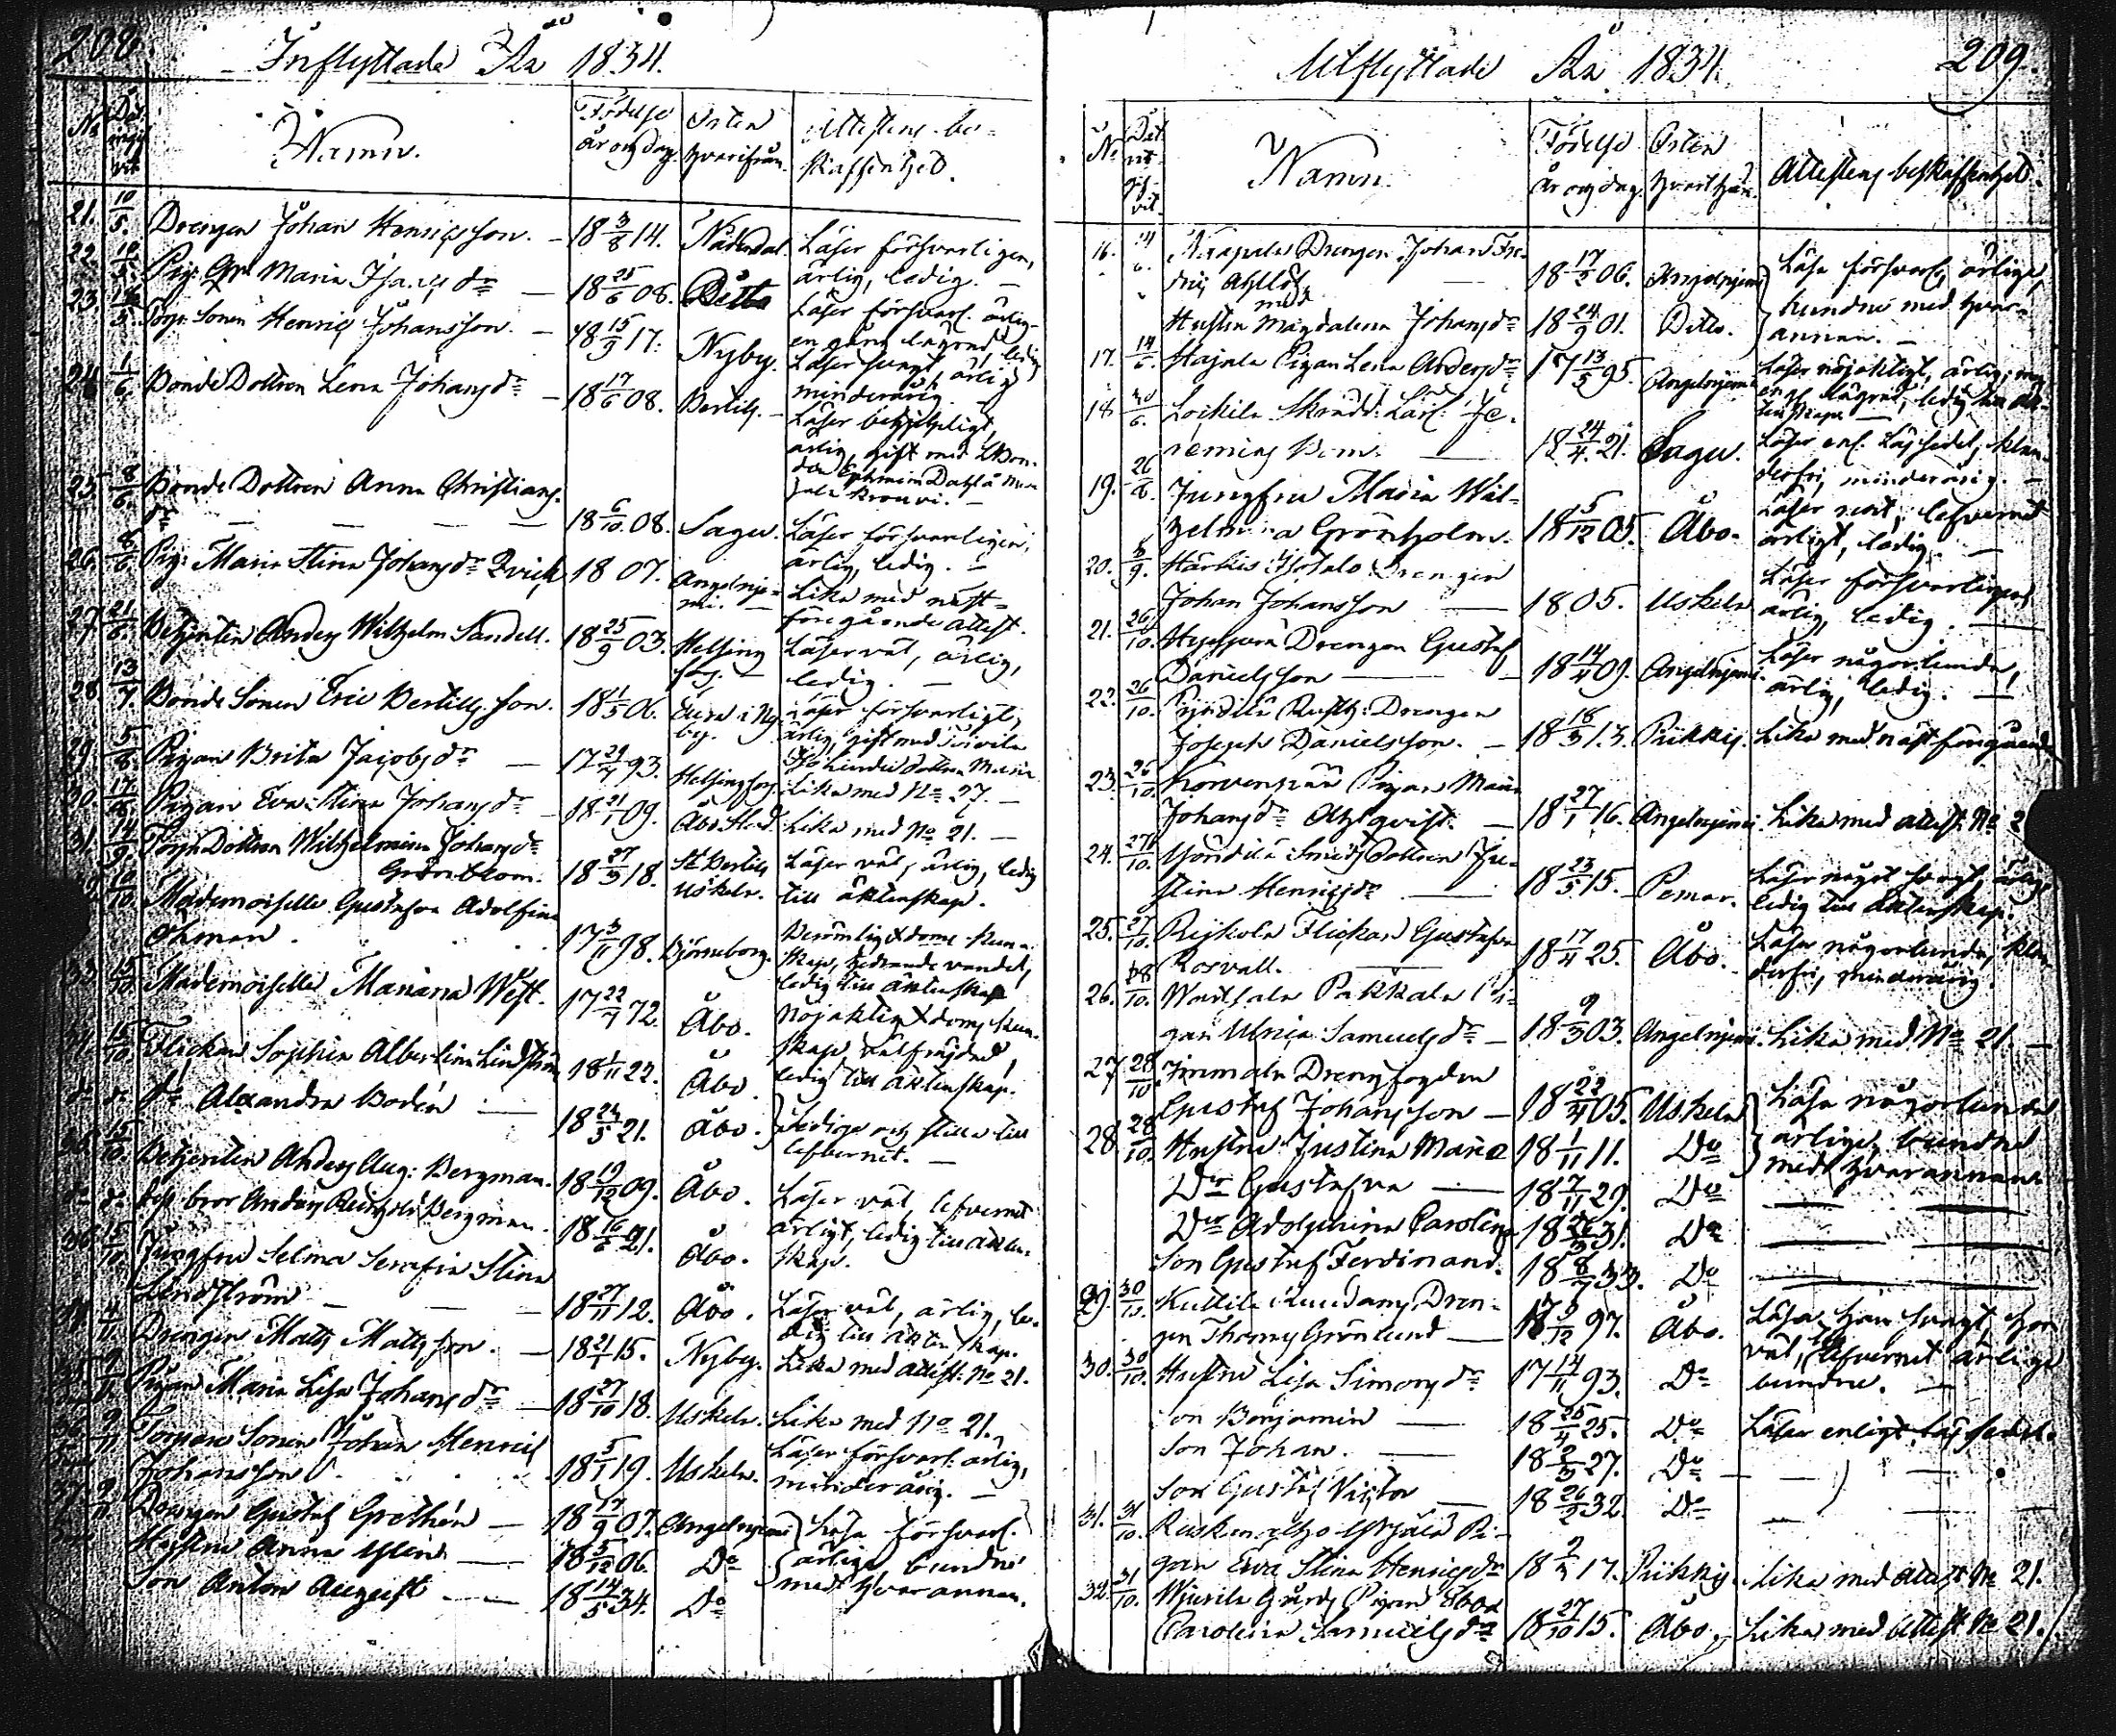 208.
Inflyttade År 1834.
No
Namn.
Födelse
år och dag.
Orten
hvarifrån.
Attestens be-
skaffenhet.
21. 10/5. Drengen Johan Henricsson. — 18 3/8 14. Nådendal. Läser försvarligen,
ärlig, ledig. —
22. 10/5. Pig. Maria Isaacs dr — 18 25/6 08. Ditto Läser försvarl. ärlig
en gång lägrad, ledig
23. Sonen Henric Johansson. — 18 15/9 17. Nyby. Läser svagt, ärlig
minderårig. —
24. 1/6. Bonde Dottren Lena Johans dr — 18 17/6 08. Bertils. — Läser behjelpligt,
ärlig, gift med Bon-
den Ephraim
25. 8/6. Bonde Dottren Anna Christians
dr — — — — 18 6/10 08. Sagu. Läser försvarligen,
ärlig, ledig. —
26. 8/6. Pig. Maria Stina Johans dr Qvick 18 07. Angelnie-
mi. — Lika med näst-
föregående attest.
27. 21/6. Betjenten Anders Wilhelm Sandell. 18 25/9 03. Helsing
fors. — Läser väl, ärlig,
ledig. —
28. 13/7. Bonde Sonen Eric Bertils son. 18 1/5 06. i Ny
by. Läser försvarligt,
ärlig, gift med
dottren Maria
29. 5/8. Pigan Brita Jacobs dr — 17 29/7 93. Helsingfors. Lika med No 27. —
30. 17/8. Pigan Eva Stina Johans dr — 18 21/1 09. Åbo Stad. Lika med No 21. —
31. 14/9. Torp. Dottren Wilhelmina Johans dr
Grönblom. 18 27/9 18. St Bertils
Uskela. Läser väl, ärlig, ledig
till äktenskap.
10/10. Mademoiselle Gustafva Adolfina
Öhman. 17 3/11 98. Björneborg. Berömlig Xdoms kun-
skap, hedrande vandel,
ledig till äktenskap
33. 15/10. Mademoiselle Mariana West. 17 22/7 72. Åbo. Nöjaktig Xdoms kun-
skap, välfrejdad,
ledig till äktenskap.
34. 15/10. Flickan Sophia Albertina Lindström 18 1/11 22. Åbo.
do do do Alexandra Bodén — 18 24/5 21. Åbo. Sedige och stilla till
lefvernet. —
35. 15/10. Betjenten Anders Aug: Bergman. 18 19/12 09. Åbo. Läser väl, lefvernet
ärligt, ledig till äkten-
skap.
do do des bror Anders Reinhold Bergman. 18 16/6 21. Åbo.
36. 15/10. Jungfru Selma Serafia Stina
Lindström — — 18 27/11 12. Åbo. Läser väl, ärlig, le-
dig till äktenskap.
4/11. Drengen Matts Matts son. — 18 21/1 15. Nyby. Lika med attest. No 21.
35. Pigan Maria Lisa Johans dr — 18 27/10 18. Uskela. Lika med No 21.
36. 9/11. Torpare Sonen Johan Henric
Johansson 18 5/1 19. Uskela. Läser försvarl. ärlig,
minderårig. —
37. 9/11. Drengen Gustaf Grethén — 18 17/9 07. Angelniemi Läsa försvarl.
ärlige, bundne
med hvarannan.
Hustru Anna — 18 5/12 06. Do
Son Anton August — 18 14/5 34. Do
209.
Utflyttade År 1834.
No
Namn.
Födelse
år och dag.
Orten
hvarthän.
Attestens beskaffenhet.
16. 14/6. Drengen Johan Fre-
dric Ahllöf 18 17/2 06. Angelniemi Läsa försvarl. ärlige,
bundne med hvar-
annan. —
med
Hustru Magdalena Johans dr 18 24/9 01. Ditto.
17. 14/6. Hajala Pigan Lena Anders dr 17 13/5 95. Angelniemi Läser nöjaktigt, ärlig, men
en g. lägrad, ledig till äk-
tenskap. —
18. 20/6. Loikila Skrädd. Lärl. Je-
remias — 18 24/4 21. Sagu. Läser enl. läs sedel, klan-
derfri, minderårig. —
19. 26/8. Jungfru Maria Wil-
helmina Grönholm. 18 5/12 05. Åbo. Läser rent, lefvernet
ärligt, ledig. —
20. 6/9. Härkis Isotalo Drengen
Johan Johansson — 18 05. Uskela Läser försvarligen
ärlig, ledig. —
21. 26/10. Drengen Gustaf
Danielsson — 18 14/4 09. Angelniemi Läser någorlunda,
ärlig, ledig. —
22. 26/10. Rusth. Drengen
Joseph Danielsson. — 18 18/3 13. Pikkis. Lika med näst föregående
23. 26/10. Korvenpää Pigan Maria
Johans dr Ahlqvist. — 18 27/1 16. Angelniemi Lika med attest. No 2
24. 27/10. Smeds Dottren Ju-
stina Henrics dr — 18 23/5 15. Pemar. Läser något svagt, ärlig,
ledig till äktenskap.
25. 27/10. Rijkola Flickan Gustafva
Rosvall. — 18 17/4 25. Åbo. Läser någorlunda, klan-
derfri, minderårig.
26. 28/10. Pikkala Pi-
gan Ulrica Samuels dr — 18 9/3 03. Angelniemi. Lika med No 21. —
27. 28/10. Immala Drengfogden
Gustaf Johansson — 18 22/4 05. Uskela Läsa någorlunda
ärlige, bundne
med hvarannan
28. 28/10. Hustru Justina Maria 18 1/11 11. Do
Dr Gustafva — 18 7/11 29. Do — —
Dr Adolphina Carolina 18 31. Do — —
Son Gustaf Ferdinand. 18 8/7 33. Do — —
29. 30/10. Kullila Dren-
gen Thomas Grönlund — 17 9/12 97. Åbo. Läsa, han svagt, hon
väl, lefvernet ärlige
bundne. —
30. 30/10. Hustru Lisa Simons dr 17 14/11 93. Do
Son Benjamin — 18 25/4 25. Do Läser enligt läs sedel.
Son Johan. — 18 2/3 27. Do — —
Son Gustaf Victor — 18 26/2 32. Do — —
31. 31/10. Pi-
gan Ewa Stina Henrics dr 18 2/7 17. Pikkis. Lika med attest No 21.
32. 31/10. Wiurila Gårds Pigan Ebba
Carolina Samuels dr 18 27/10 15. Åbo. Lika med attest No 21.